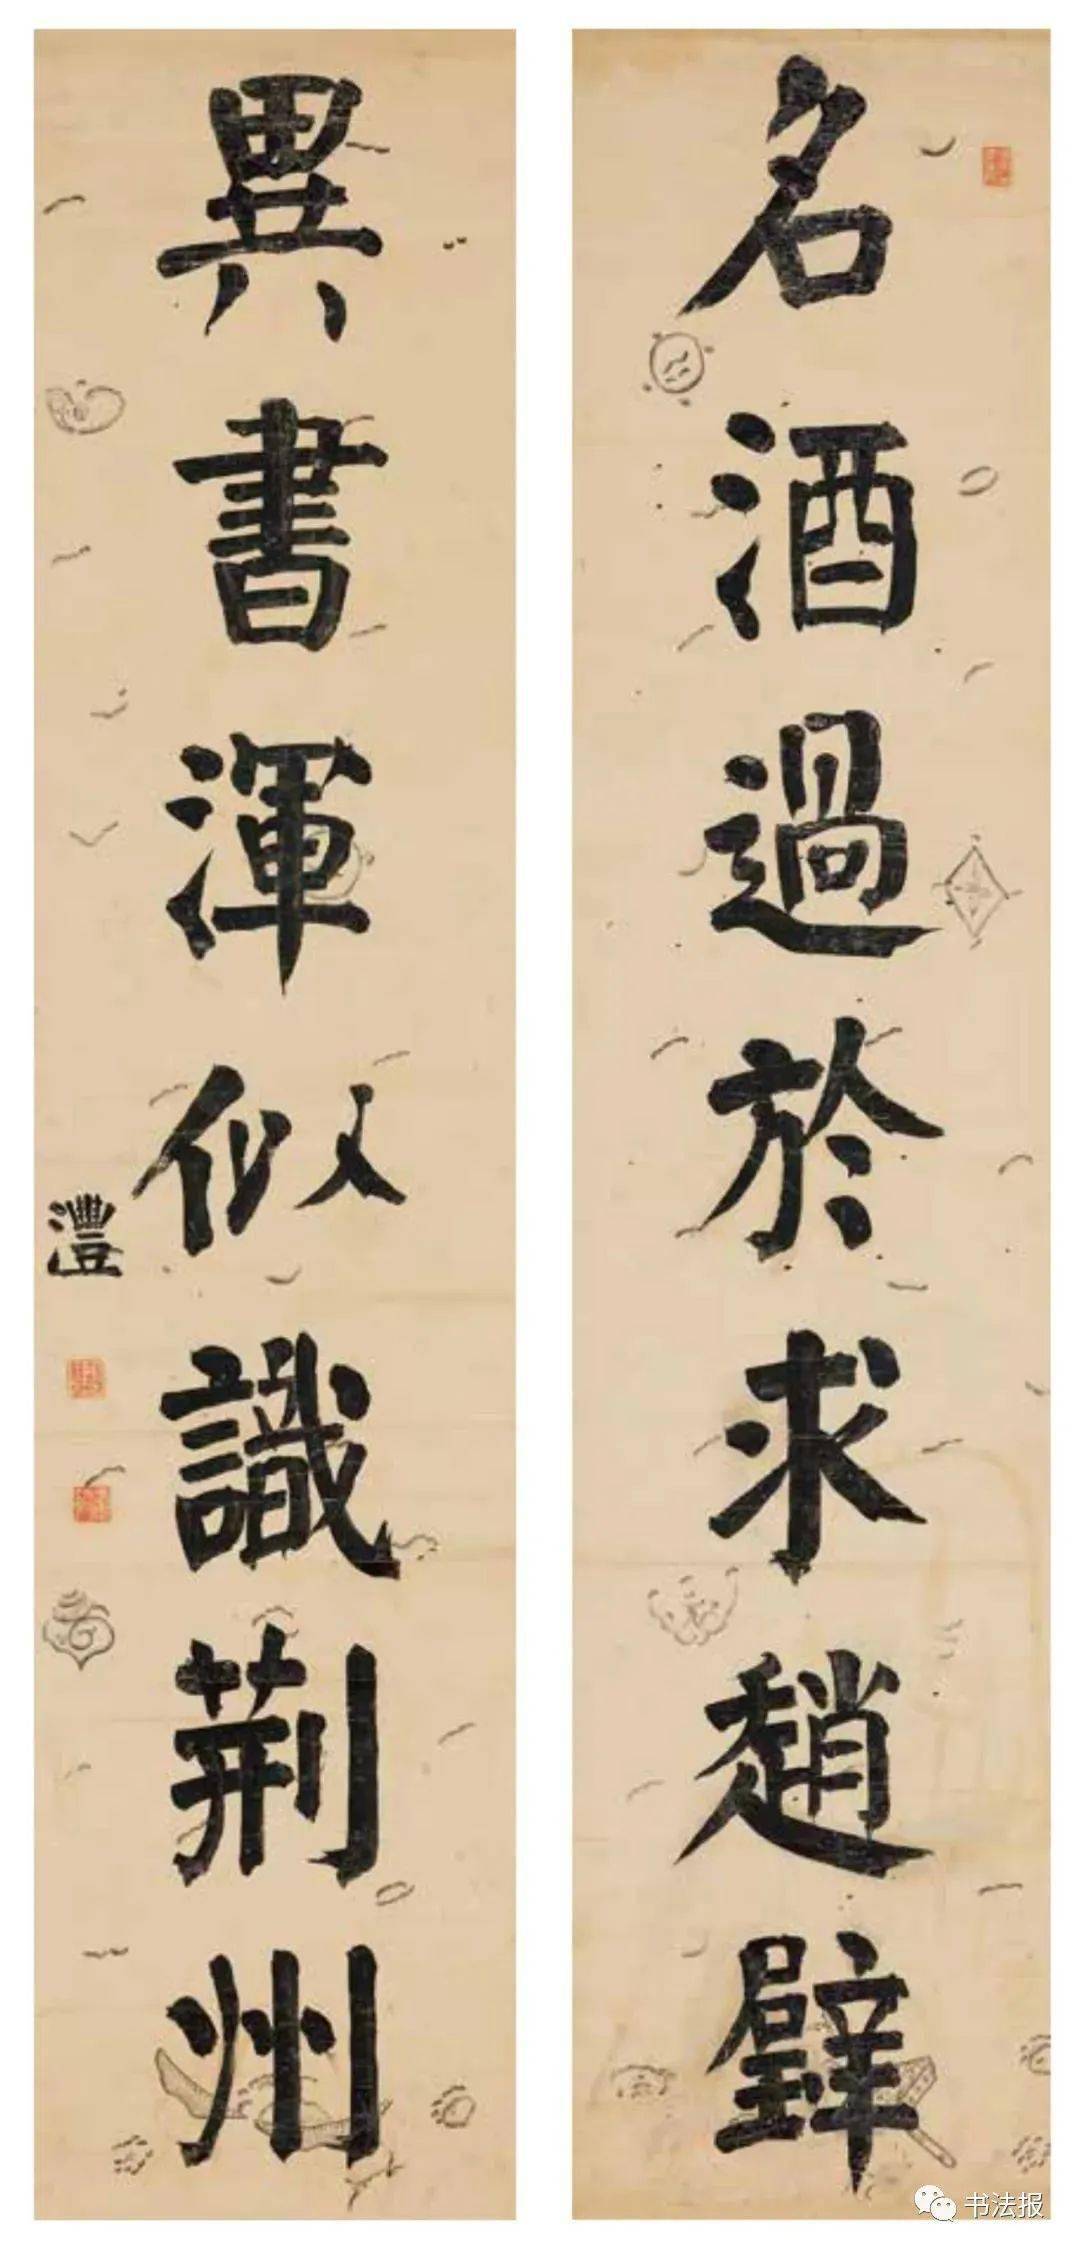 名酒過於求趙璧
異書渾似識荊州
灃
书法报